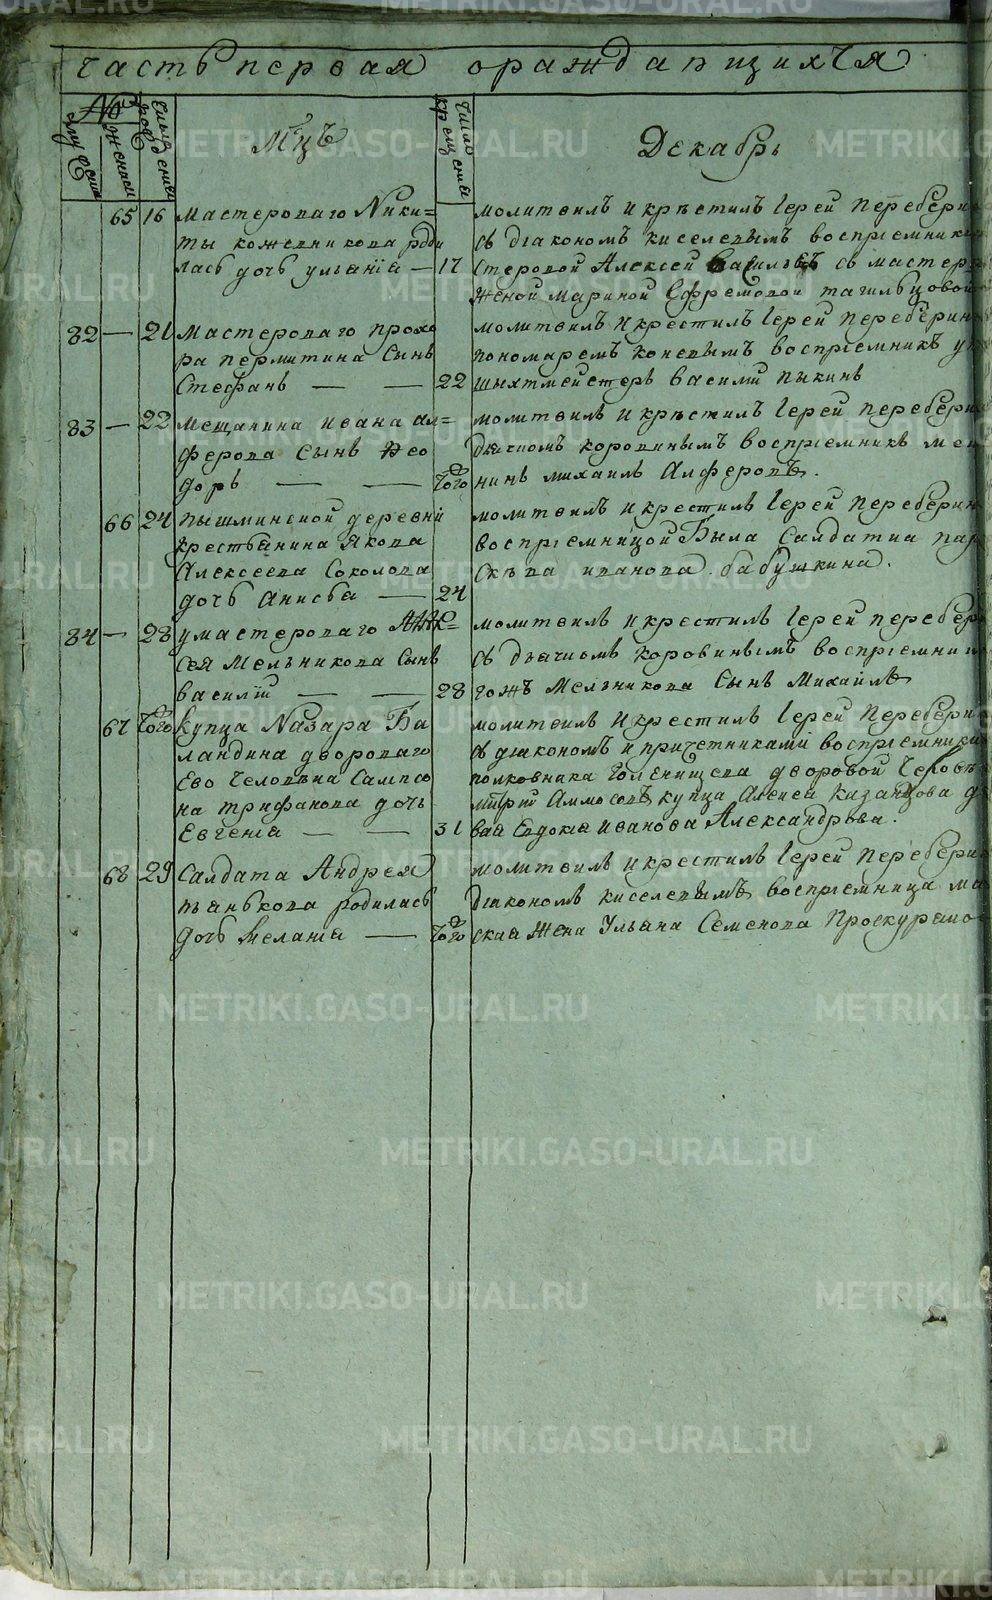 часть первая ораждающихся
№
муж
женск
число рождения
Мцъ
число крещения
Декабрь
65 16 Мастероваго Ники=
ты кожевникова роди
лась дочь ульанïа — 17
молитвилъ и крѣстилъ Iерей Перебери
съ дïакономъ киселевымъ воспрïемники
стеровой Алексей Васильевъ съ мастер
женой Мариной Ефремовой тагильцовой
82 — 21 Мастероваго прохо
ра пермитина сынъ
Стефанъ — — 22
молитвилъ и крестилъ Iерей Переберин
пономаремъ коневымъ воспрïемникъ
шыхтмейстеръ василïй пыкинъ
83 — 22 мещанина ивана ал=
ферова сынъ Ѳео
доръ — — того
молитвилъ и крѣстилъ Iерей перебери
дьячкомъ коровинымъ воспрïемникъ мещ
нинъ михаилъ Алферовъ.
66 24 пышминской деревни
крестьянина Якова
Алексеева Соколова
дочь Анисьа — 24
молитвилъ и крестилъ Iерей Переберин
воспрïемницой Была Салдатка пар
скѣва иванова бабушкина.
84 — 28 умастероваго Алек=
сея Мельникова сынъ
василïй — — 28
молитвилъ и крестилъ Iерей перебер
съ дьячкомъ коровинымъ воспрïемни
гожъ Мельникова сынъ Михаилъ
67 того купца Назара Ба
ландина двороваго
Ево человѣка Сампсо
на трифанова дочь
Евгенïа — — 31
молитвилъ и крестилъ Iерей Перебери
съ дïакономъ и причетниками воспрïемники
полковника Голенищева дворовой человѣк
митрïй Аммосовъ купца Алексеа Казанцова д
ваа Евдокïа Иванова Александрова.
68 29 Салдата Андрея
пьанкова родилась
дочь Меланïа — того
молитвилъ и крестилъ Iерей Перебери
дïакономъ киселевымъ воспрïемница ма
скаа жена Ульана Семенова Проскурако